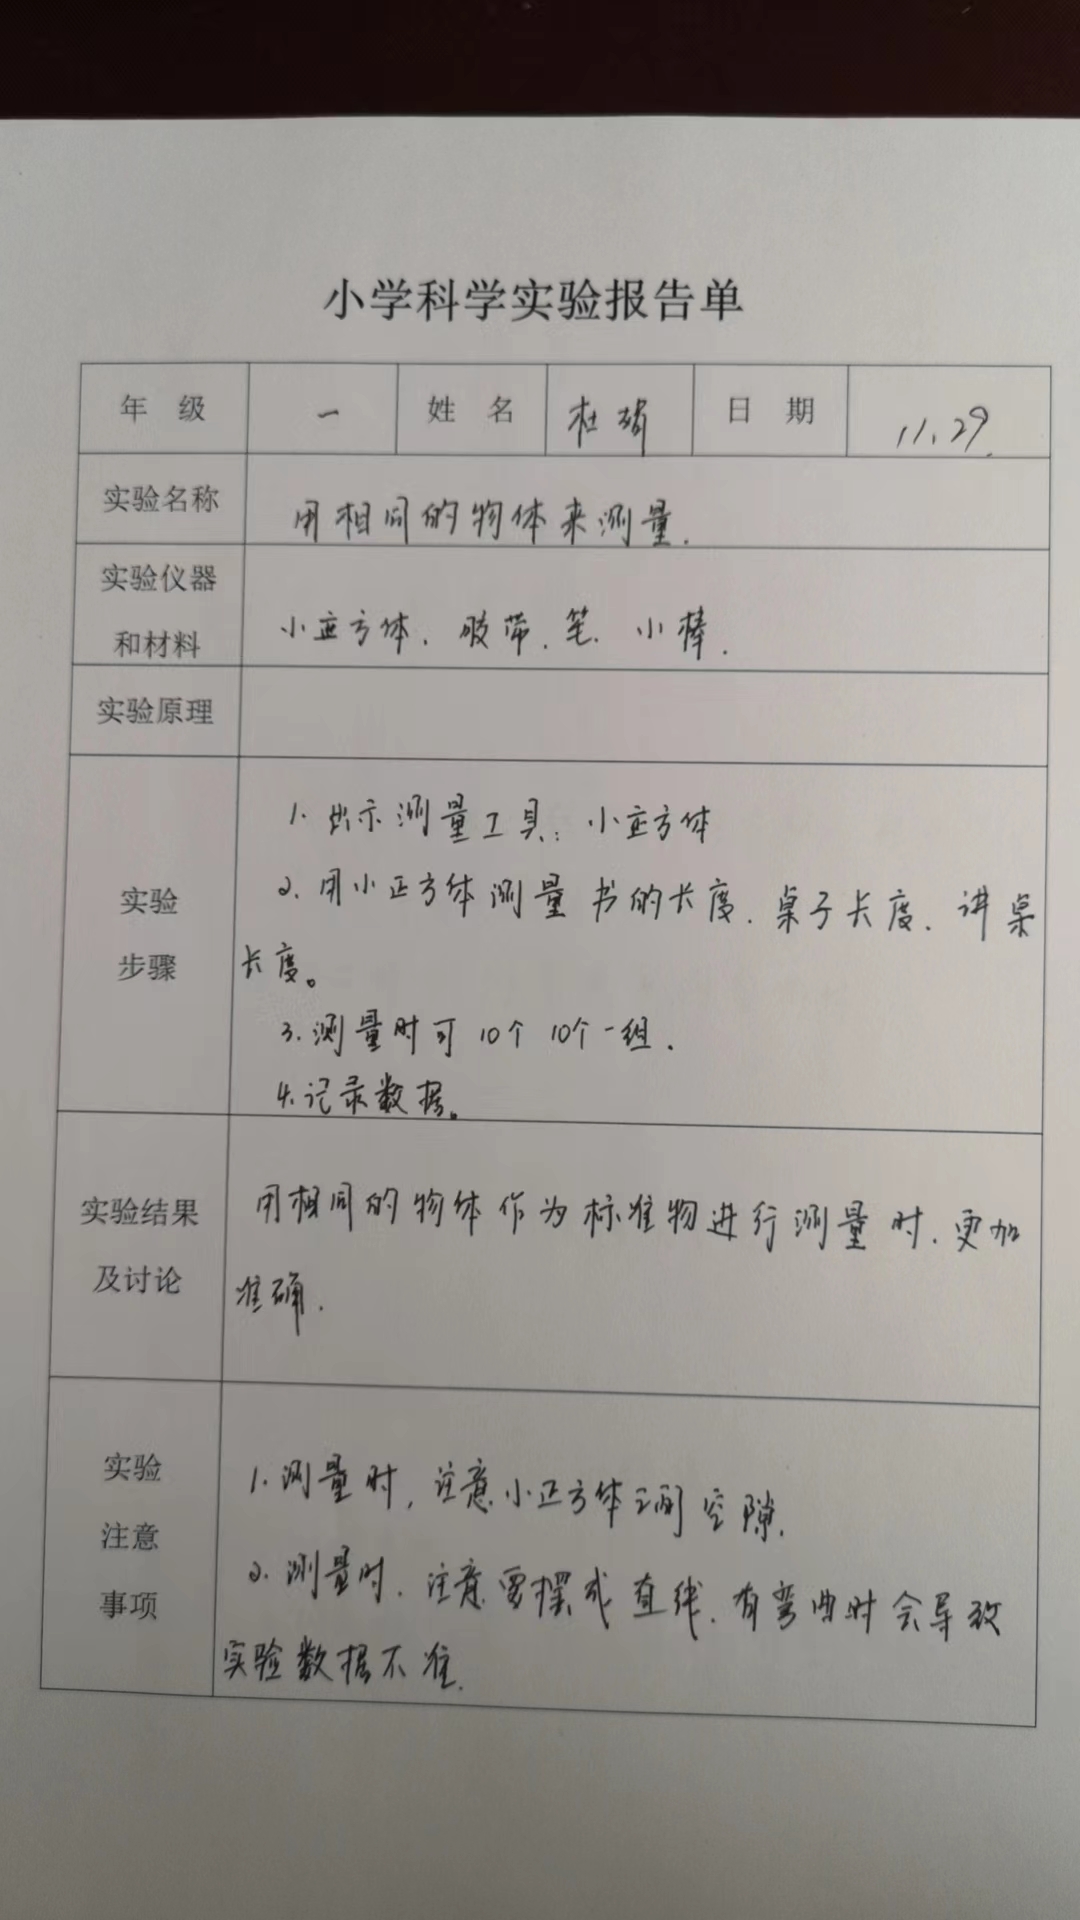 小学科学实验报告单
年 级 一 姓 名 杜 日 期 11.29.
实验名称 用相同的物体来测量.
实验仪器
和材料 小正方体. 胶带. 笔. 小棒.
实验原理
实验
步骤
1. 出示测量工具: 小正方体
2. 用小正方体测量 书的长度. 桌子长度. 讲桌
长度。
3. 测量时可 10个 10个一组.
4. 记录数据。
实验结果
及讨论
用相同的物体作为标准物进行测量时. 更加
准确.
实验
注意
事项
1. 测量时, 注意小正方体之间空隙.
2. 测量时. 注意要摆成直线. 有弯曲时会导致
实验数据不准.